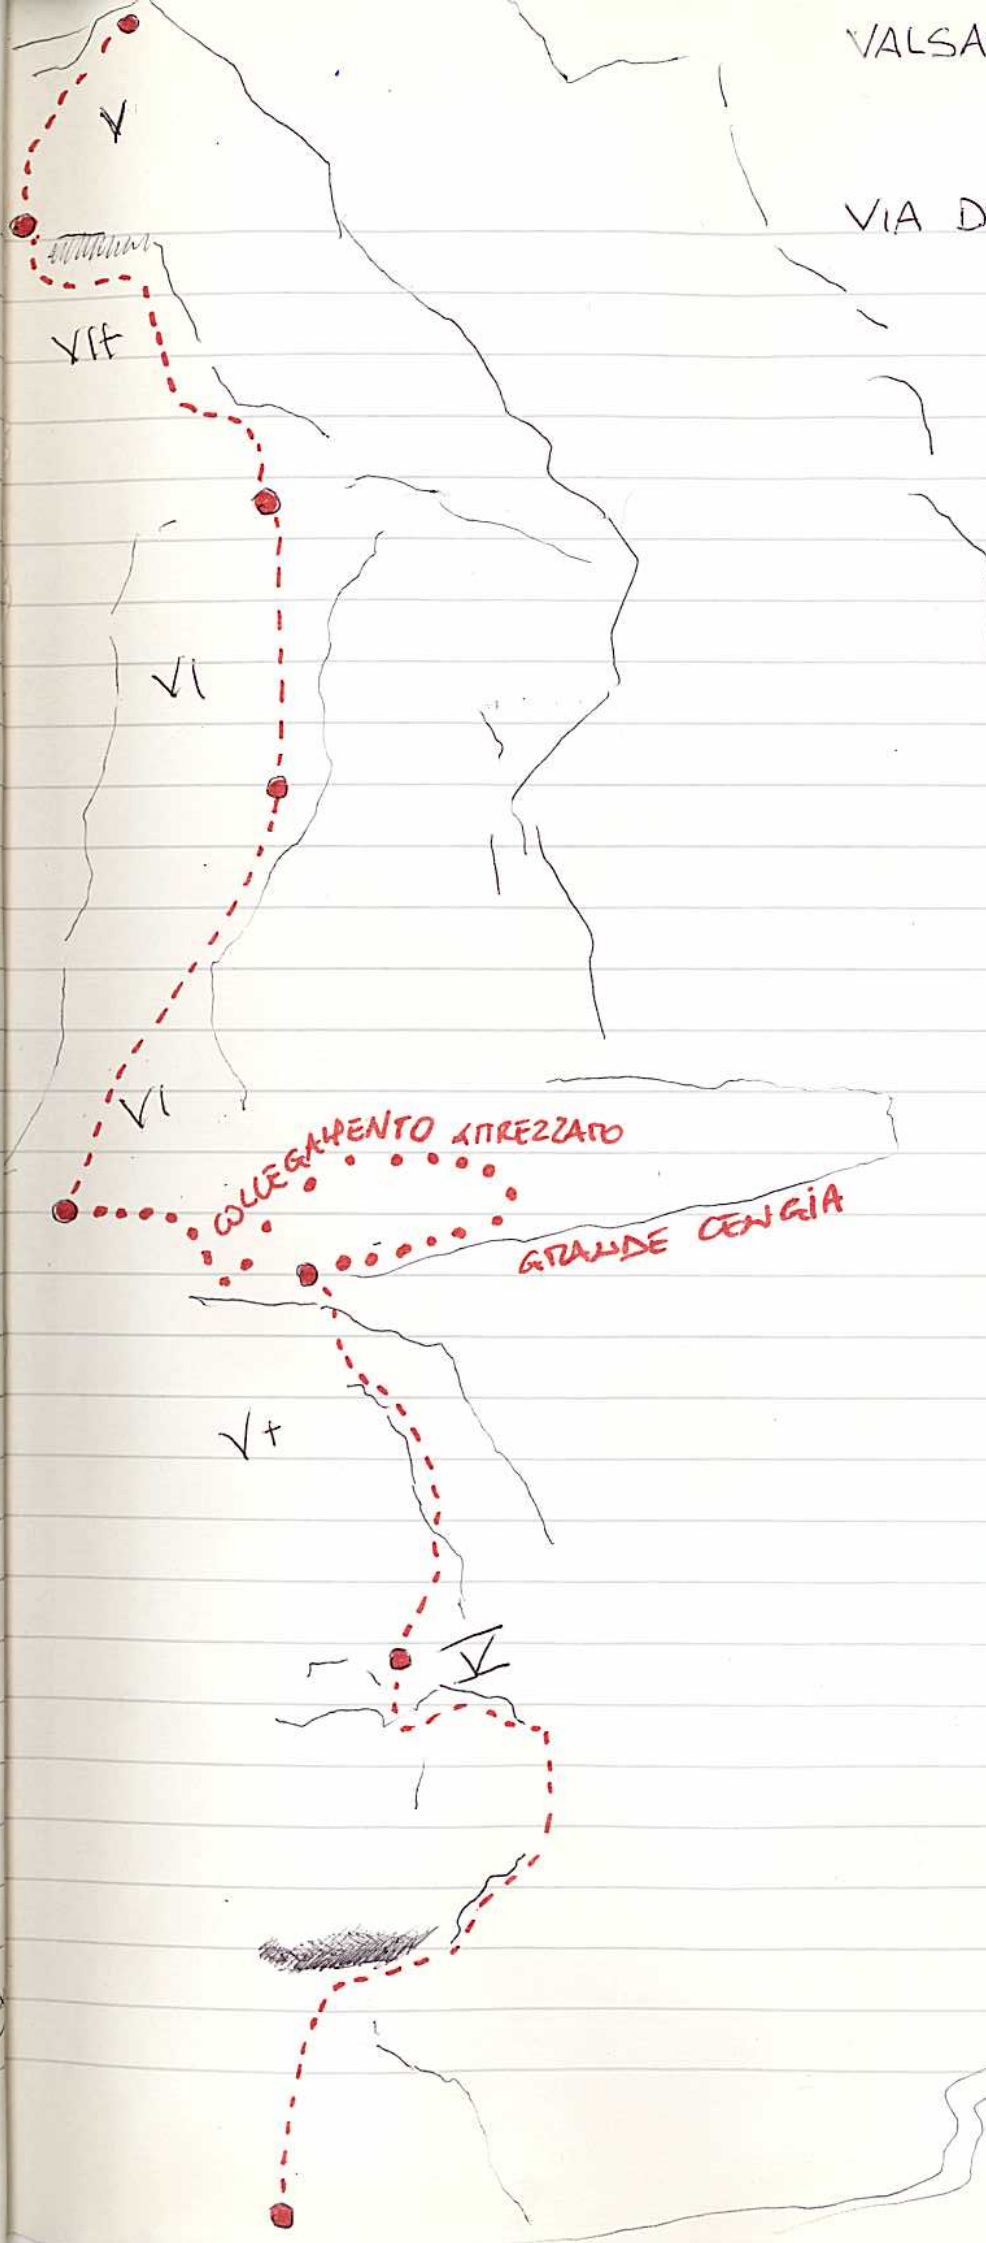 VALSA
VIA D
V
VI+
VI
VI
COLLEGAMENTO ATTREZZATO
GRANDE CENGIA
V+
V